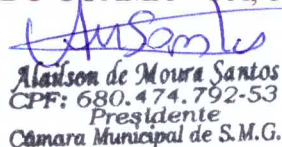 Alailson de Moura Santos
CPF: 680.474.792-53
Presidente
Câmara Municipal de S.M.G.